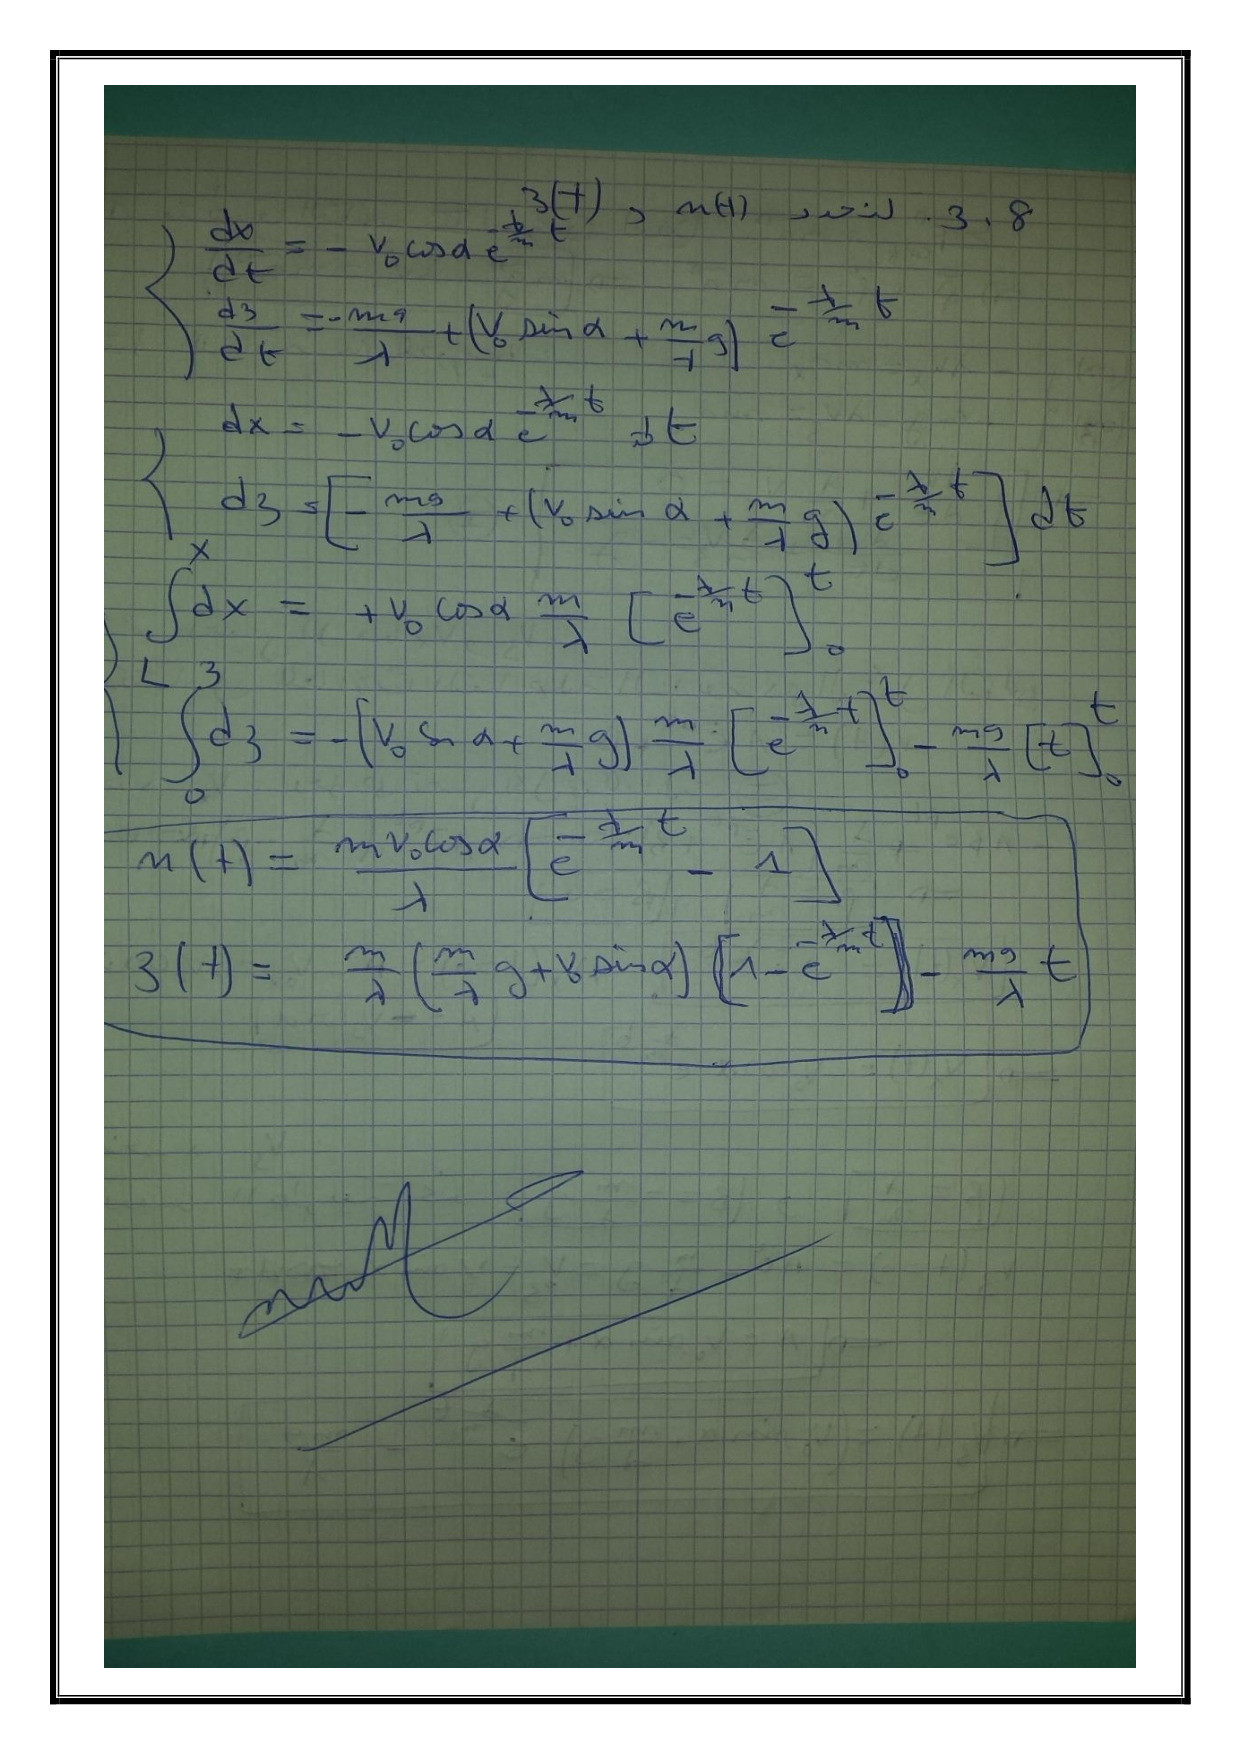 8 . 3 . x(t) و z(t)
dx/dt = - v₀ cos α e^(-λ/m t)
dz/dt = - mg/λ + (v₀ sin α + m/λ g) e^(-λ/m t)
dx = - v₀ cos α e^(-λ/m t) dt
dz = [ - mg/λ + (v₀ sin α + m/λ g) e^(-λ/m t) ] dt
∫_L^x dx = + v₀ cos α m/λ [ e^(-λ/m t) ]_0^t
∫_0^z dz = - (v₀ sin α + m/λ g) m/λ [ e^(-λ/m t) ]_0^t - mg/λ [t]_0^t
x(t) = m v₀ cos α / λ [ e^(-λ/m t) - 1 ]
z(t) = m/λ ( m/λ g + v₀ sin α ) [ 1 - e^(-λ/m t) ] - mg/λ t